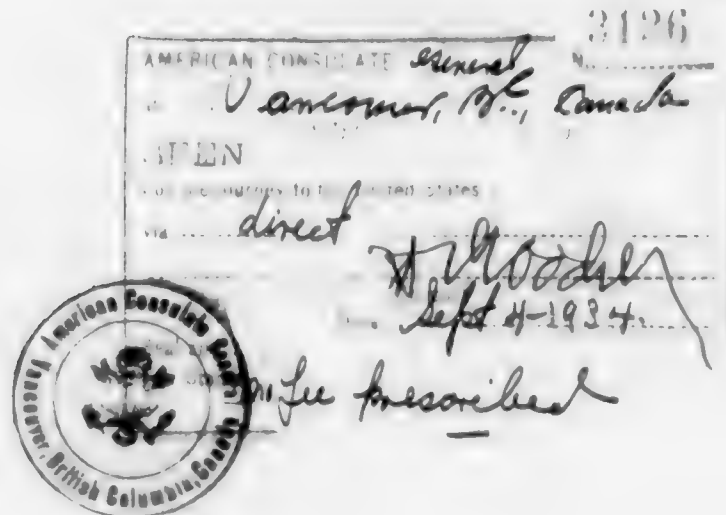 3126
AMERICAN CONSULATE General No.
Vancouver, B.C., Canada
SEEN
journey to the United States
via direct
Sept 4-1934
no fee prescribed
American Consulate General
Vancouver, British Columbia, Canada